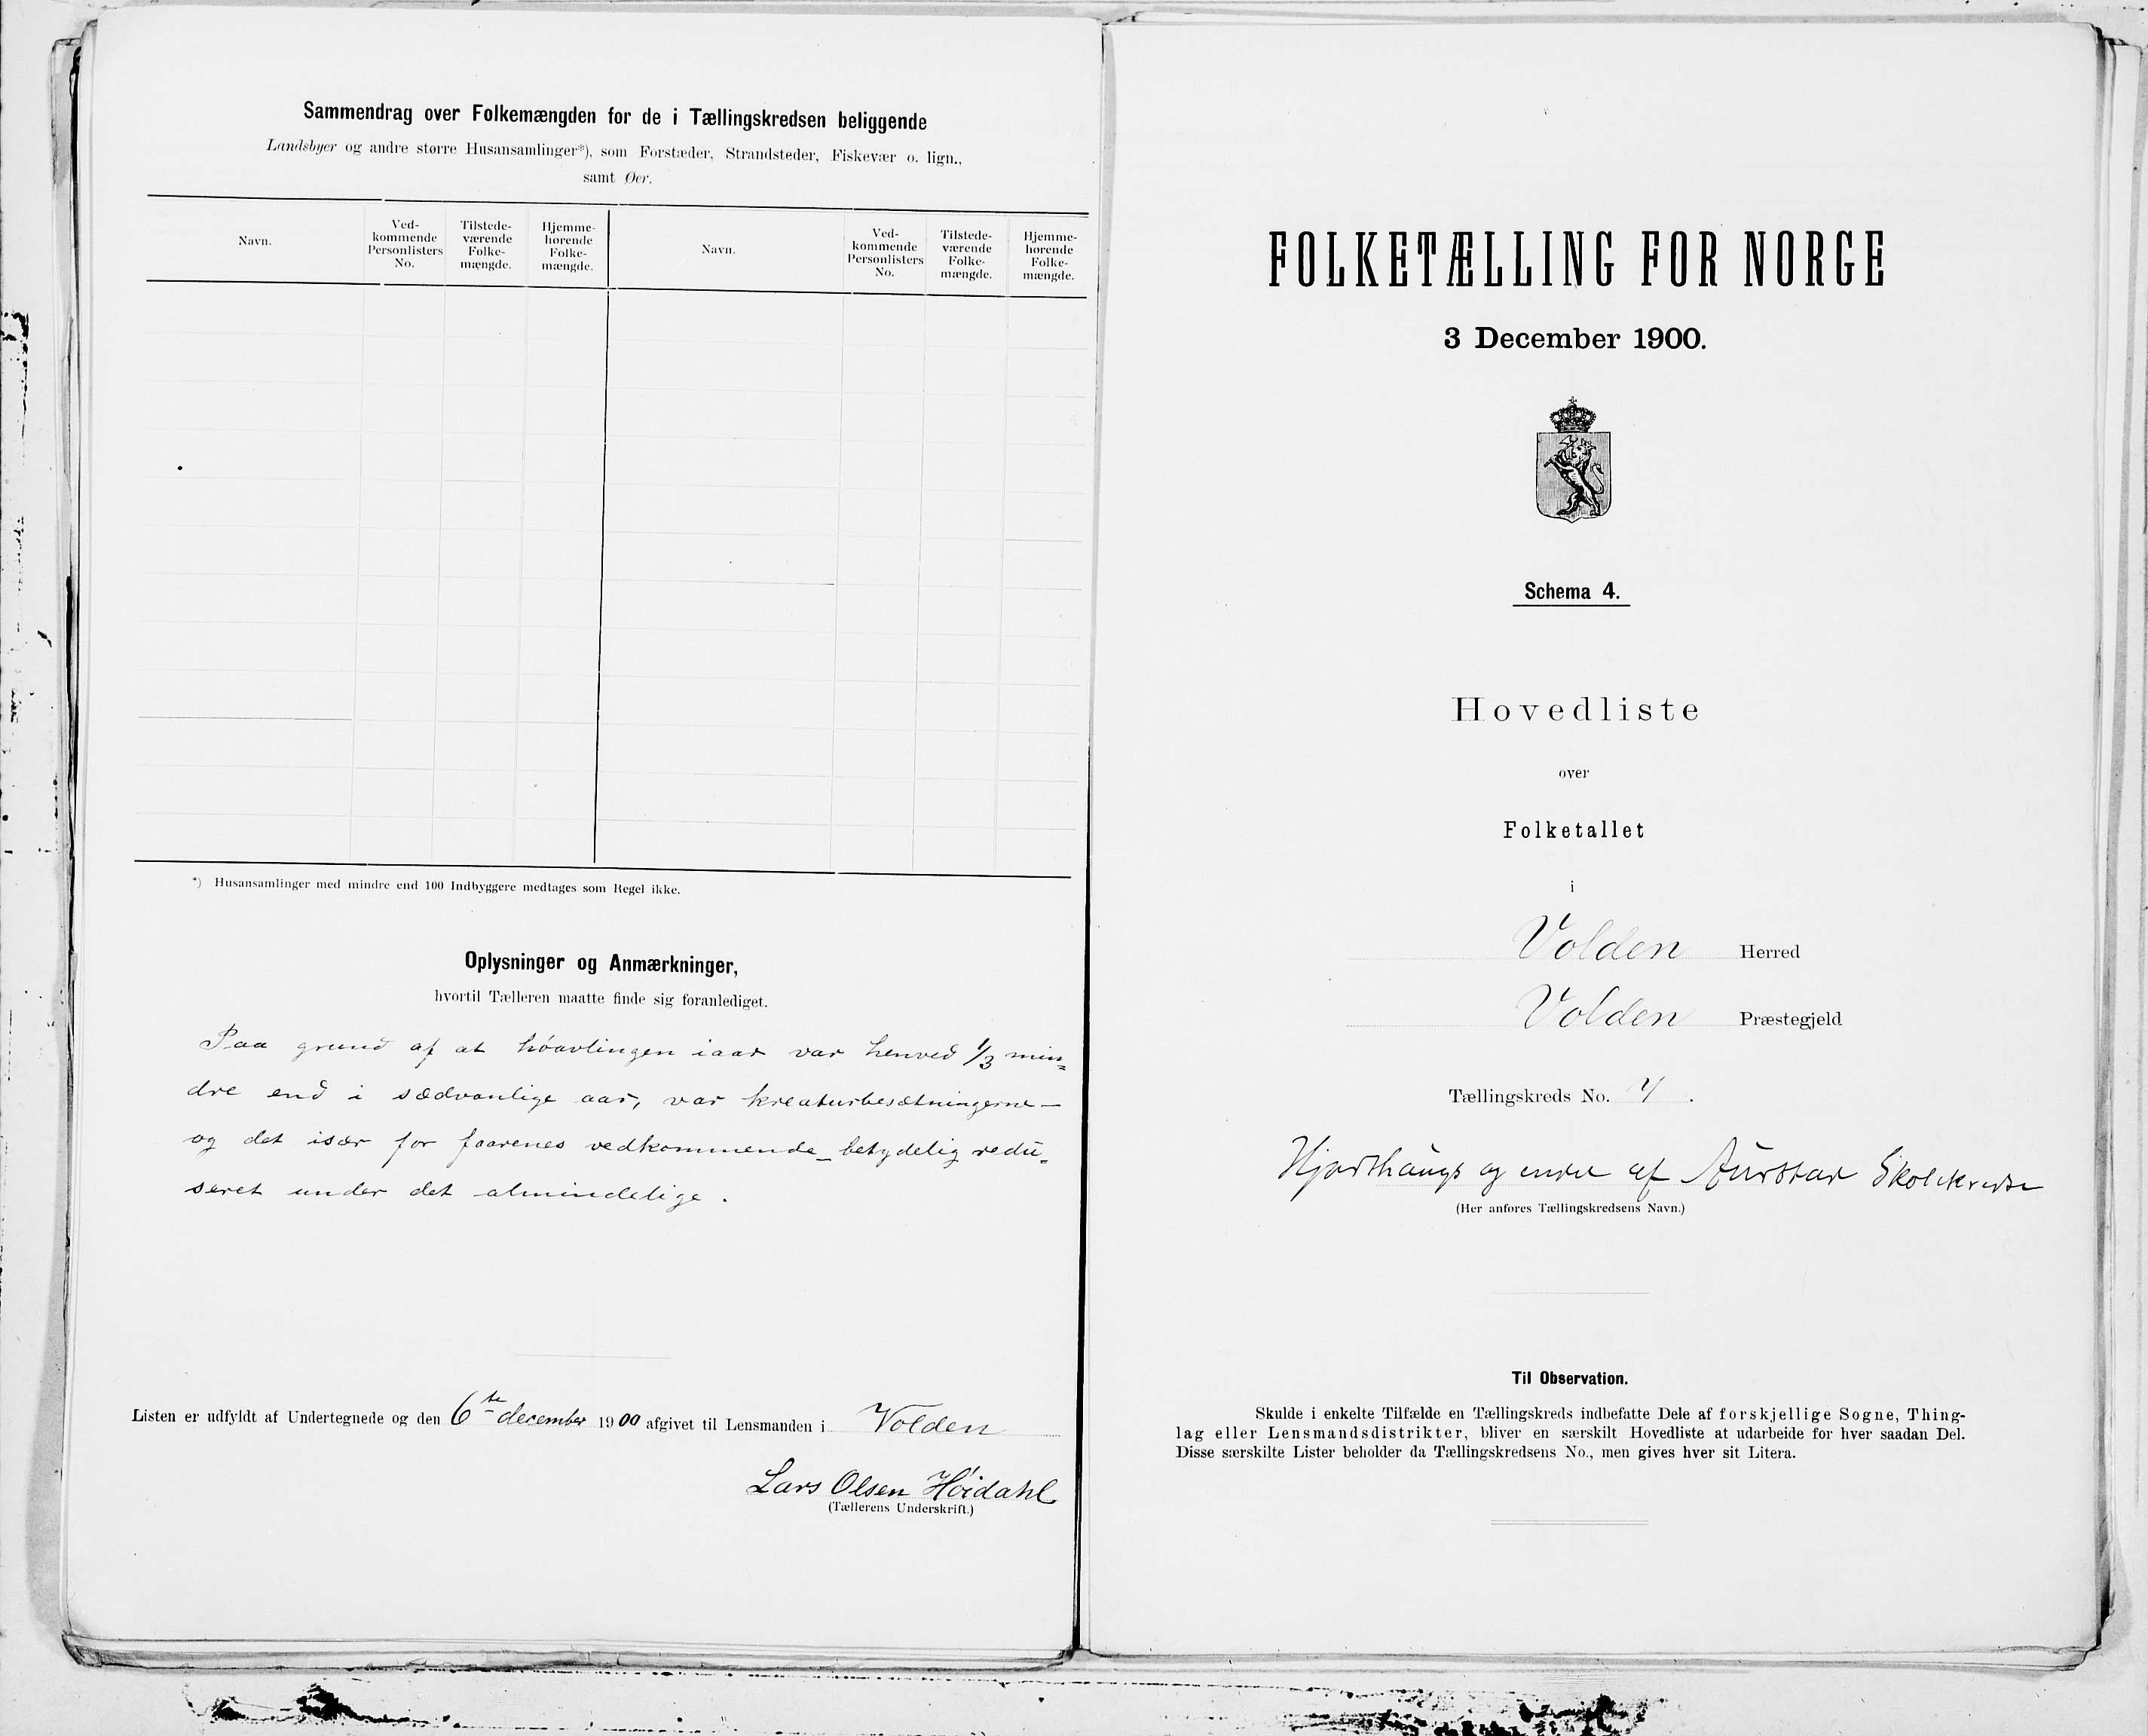 Sammendrag over Folkemængden for de i Tællingskredsen beliggende
Landsbyer og andre større Husansamlinger*), som Forstæder, Strandsteder, Fiskevær o. lign.,
samt Øer.
Navn.
Ved-
kommende
Personlisters
No.
Tilstede-
værende
Folke-
mængde.
Hjemme-
hørende
Folke-
mængde.
Navn.
Ved-
kommende
Personlisters
No.
Tilstede-
værende
Folke-
mængde.
Hjemme-
hørende
Folke-
mængde.
*) Husansamlinger med mindre end 100 Indbyggere medtages som Regel ikke.
Oplysninger og Anmærkninger,
hvortil Tælleren maatte finde sig foranlediget.
Paa grund af at høavlingen iaar var henved 1/3 min=
dre end i sædvanlige aar, var kreaturbesætningerne –
og det især for faarenes vedkommende – betydelig redu=
seret under det almindelige.
Listen er udfyldt af Undertegnede og den 6te december 1900 afgivet til Lensmanden i Volden
Lars Olsen Höidahl
(Tællerens Underskrift.)
FOLKETÆLLING FOR NORGE
3 December 1900.
Schema 4.
Hovedliste
over
Folketallet
i
Volden Herred
Volden Præstegjeld
Tællingskreds No.
Hjorthaugs og af Aurstad Skolekredse
(Her anføres Tællingskredsens Navn.)
Til Observation.
Skulde i enkelte Tilfælde en Tællingskreds indbefatte Dele af forskjellige Sogne, Thing-
lag eller Lensmandsdistrikter, bliver en særskilt Hovedliste at udarbeide for hver saadan Del.
Disse særskilte Lister beholder da Tællingskredsens No., men gives hver sit Litera.